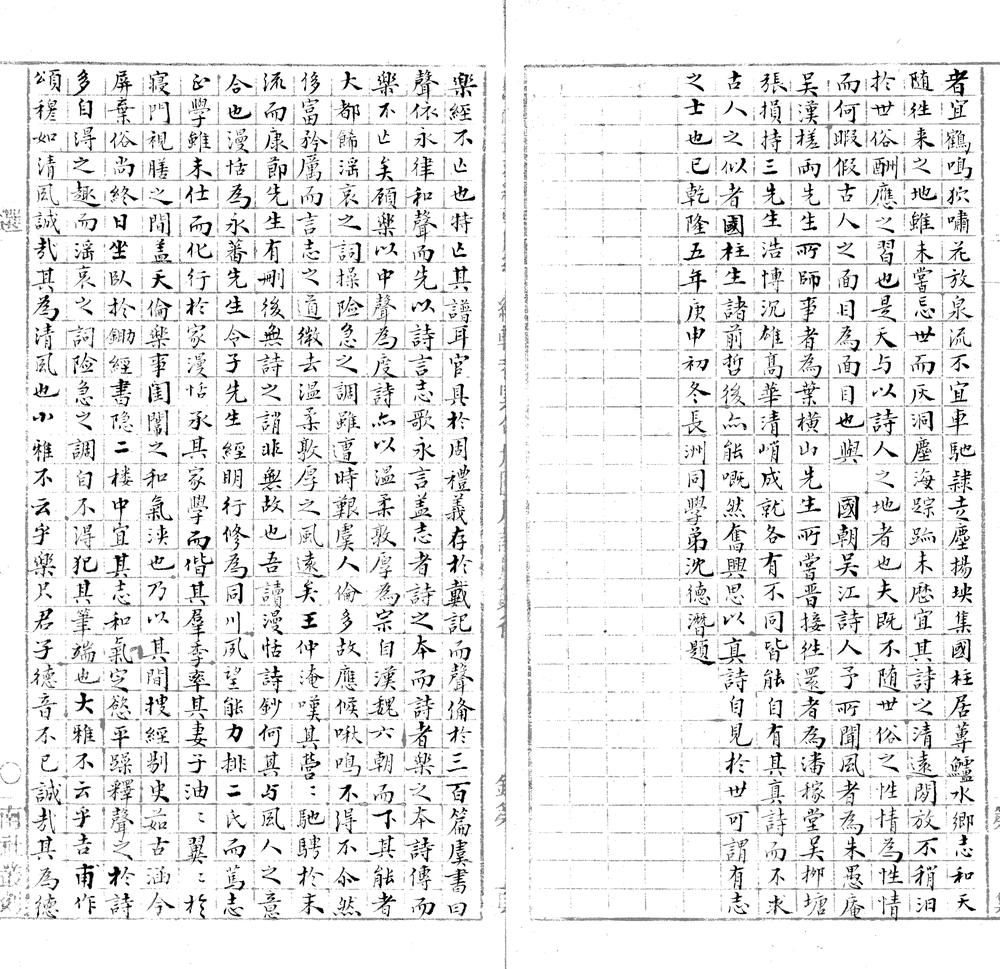 者宜鶴鳴猿嘯花放泉流不宜車馳隷吉塵揚坱集國柱居蓴鱸水鄉志和天
随徃来之地雖未嘗忘世而灰洞塵海踪跡未歴宜其詩之清遠閒放不稍汩
扵世俗酬應之習也是天与以詩人之地者也夫既不随世俗之性情為性情
而何暇假古人之面目為面目也與 國朝吴江詩人予所聞風者為朱愚庵
吴漢槎兩先生所師事者為葉横山先生所嘗晋接徃還者為潘稼堂吴栁塘
張損持三先生浩博沉雄髙華清峭成就各有不同皆能自有其真詩而不求
古人之似者國柱生諸前哲後亦能嘅然奮興思以真詩自見扵世可謂有志
之士也已乾隆五年庚申初冬長洲同學弟沈德潛題
樂經不亡也特亡其譜耳官具扵周禮義存扵戴記而聲倫扵三百篇虞書曰
聲依永律和聲而先以詩言志歌永言盖志者詩之夲而詩者樂之夲詩傳而
樂不亡矣顧樂以中聲為度詩亦以温柔敦厚為宗自漢魏六朝而下其能者
大都飾滛哀之詞操險急之調雖遭時艱虞人倫多故應候啾鳴不得不尒然
侈富矜厲而言志之道微去温柔敦厚之風逺矣王仲淹嘆其營〻馳騁扵末
流而康節先生有刪後無詩之誚非無故也吾讀漫恬詩鈔何其与風人之意
合也漫恬為永蕃先生令子先生經明行修為同川風望能力排二氏而篤志
正學雖未仕而化行扵家漫恬承其家學而偕其羣季率其妻子油〻翼〻扵
寝門視膳之間盖天倫樂事閨闥之和氣浹也乃以其間捜經剔史茹古涵今
屏棄俗尚終日坐臥扵鋤經書隐二樓中宜其志和氣定慾平躁釋聲之扵詩
多自得之趣而滛哀之詞險急之調自不得犯其筆端也大雅不云乎吉甫作
頌穆如清風誠㢤其為清風也小雅不云乎樂只君子德音不已誠㢤其為德
選
南社叢刻